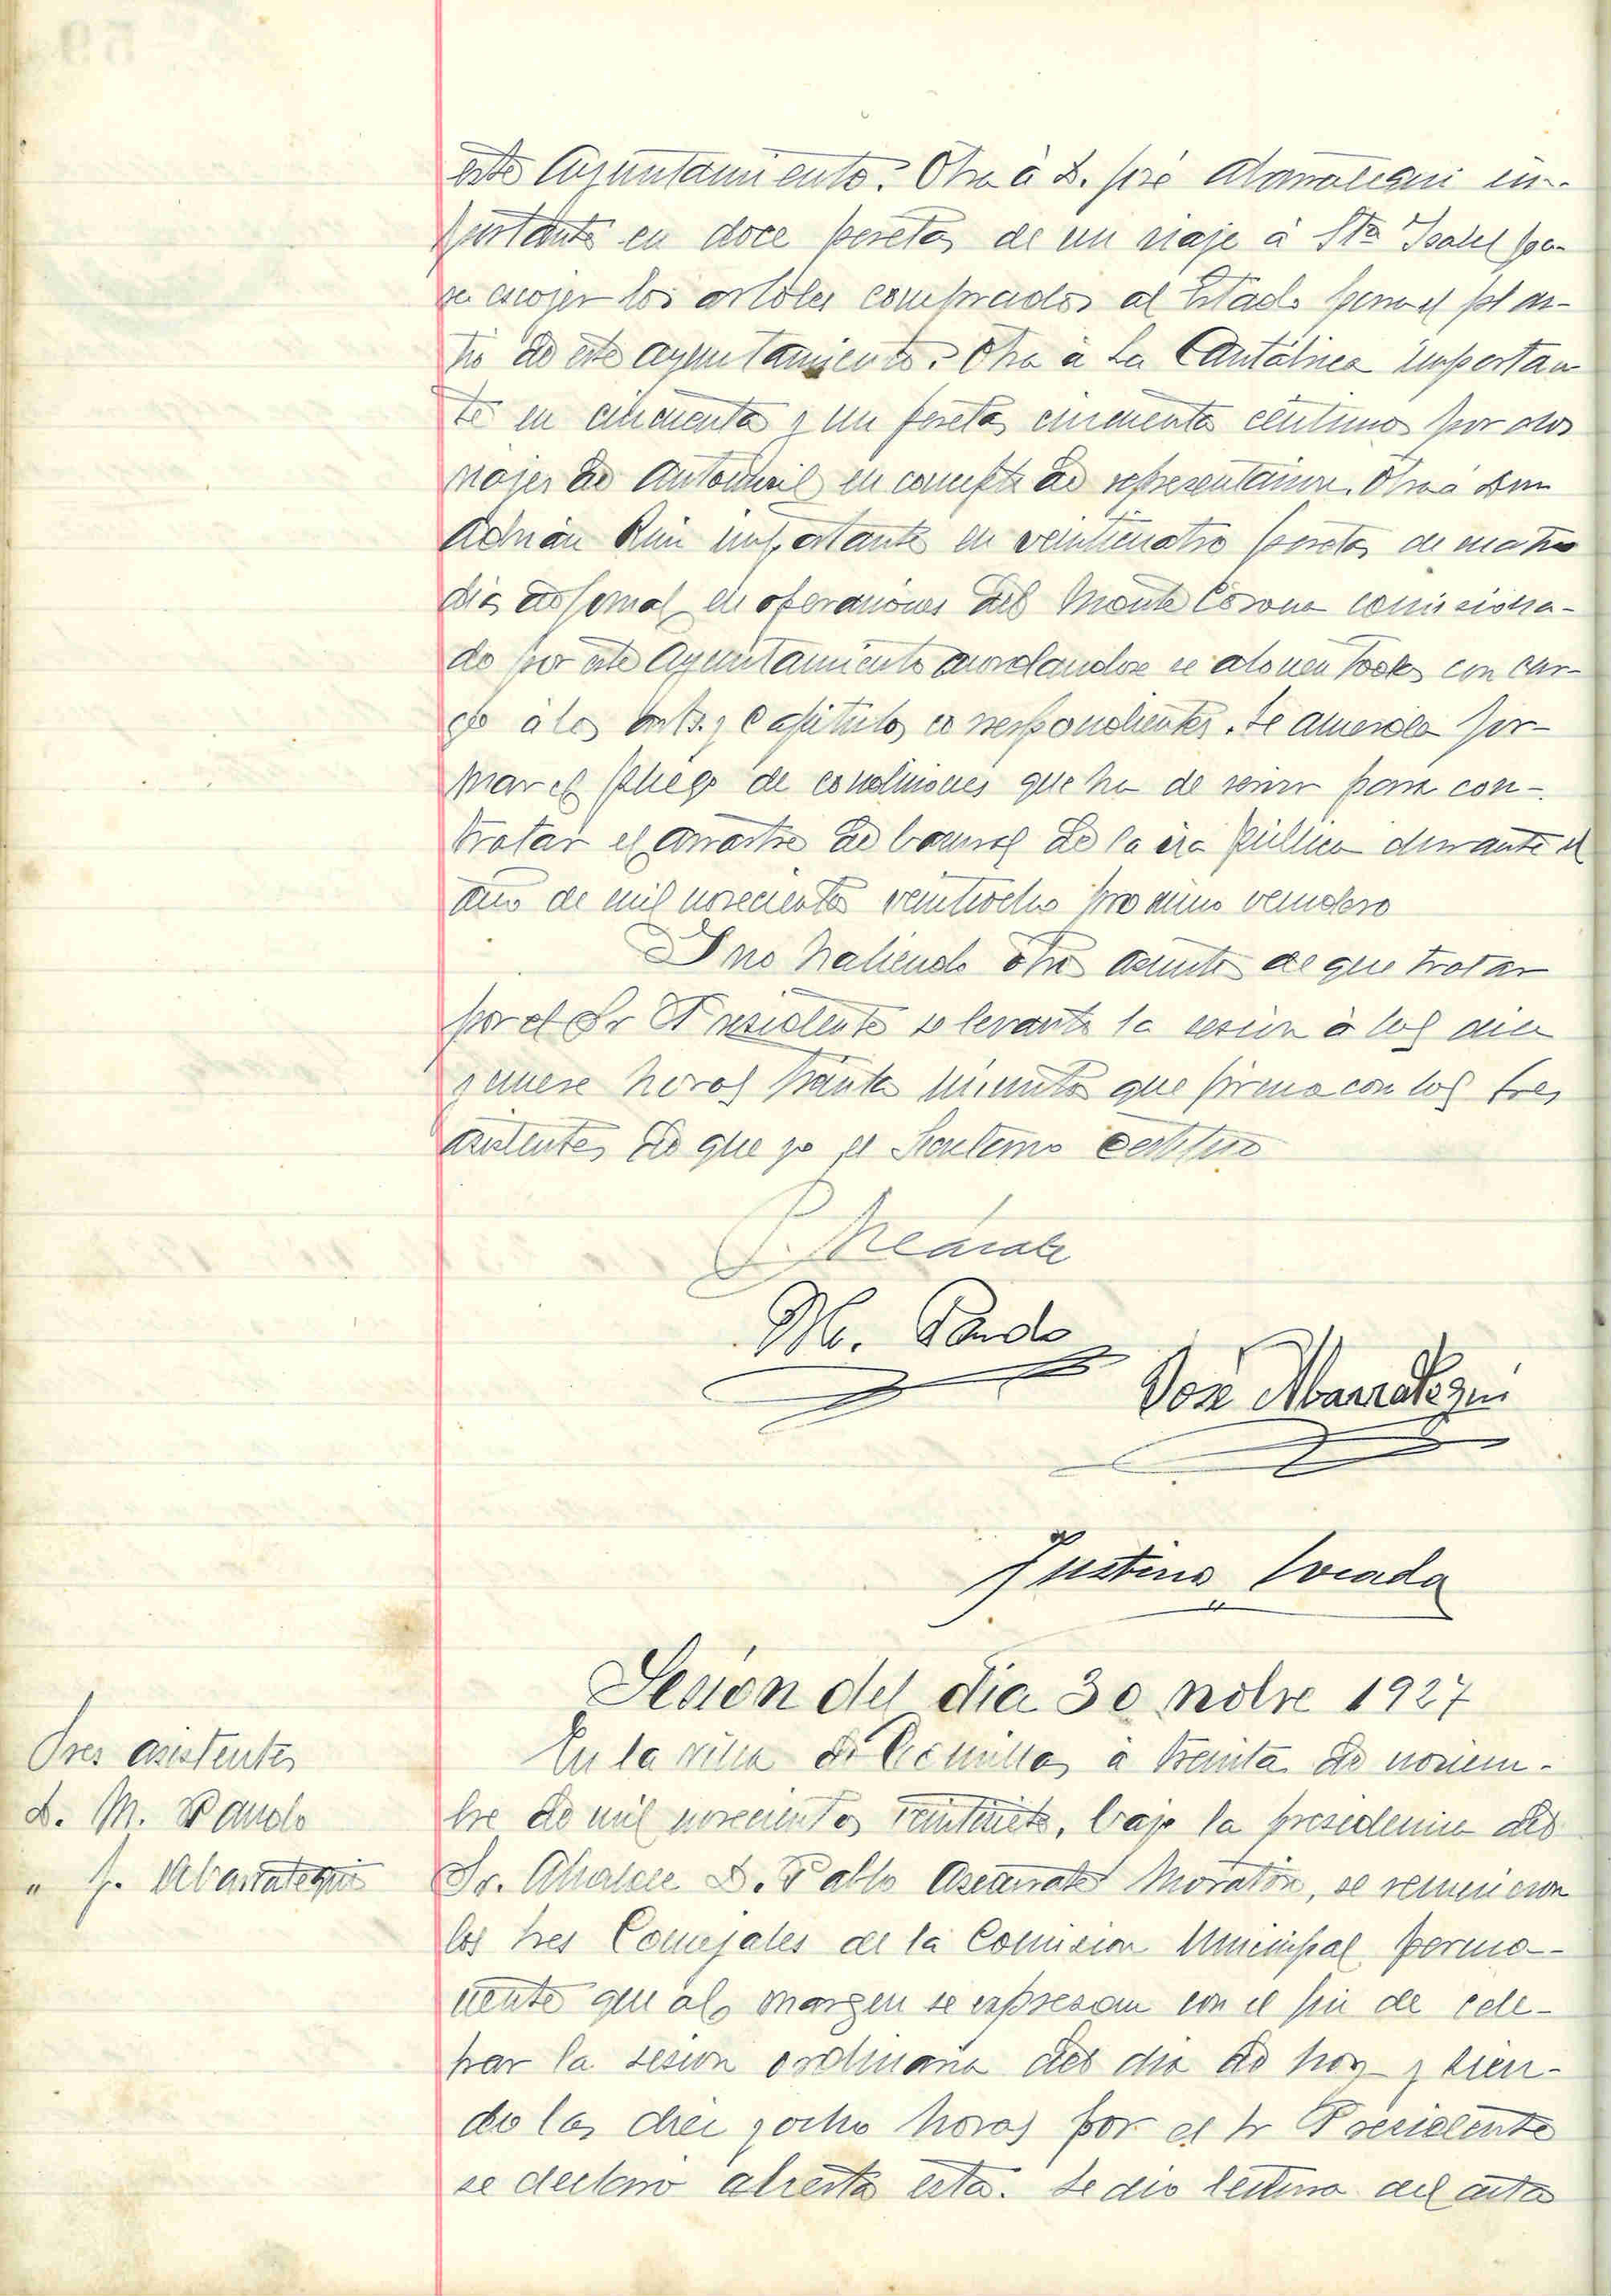 este Ayuntamiento. Otra á D. José Abarrategui im-
portante en doce pesetas de un viaje á Sta Isabel pa-
ra escojer los arboles comprados al Estado para el plan-
tio de este ayuntamiento. Otra á La Cantábrica importan-
te en cincuenta y un pesetas cincuenta centimos por dos
viajes de automovil en concepto de representacion. Otra á Don
Adrián Ruiz importante en veinticuatro pesetas de cuatro
dias de jornal en operaciones del Monte Corona comisiona-
do por este Ayuntamiento acordandose se abonen todas con car-
go á los arts. y Capitulos correspondientes. Se acuerda for-
mar el pliego de condiciones que ha de servir para con-
tratar el arrastre de basuras de la via pública durante el
año de mil novecientos veintiocho proximo venidero
Y no habiendo otros asuntos de que tratar
por el Sr Presidente se levanto la sesion á las diez
y nueve horas treinta minutos que firma con los Sres
asistentes de que yo el Secretario certifico
M. Pando
José Abarrategui
Justino
Sesión del dia 30 nobre 1927
Sres asistentes
D. M. Pando
" J. Abarrategui
En la villa de Comillas á treinta de noviem-
bre de mil novecientos veintisiete, bajo la presidencia del
Sr. Alcalde D. Pablo Azcárate Moratón, se reunieron
los Sres Concejales de la Comision Municipal perma-
nente que al margen se expresan con el fin de cele-
brar la sesion ordinaria del dia de hoy y sien-
do las diez y ocho horas por el Sr Presidente
se declaro abierta esta. Se dio lectura del acta